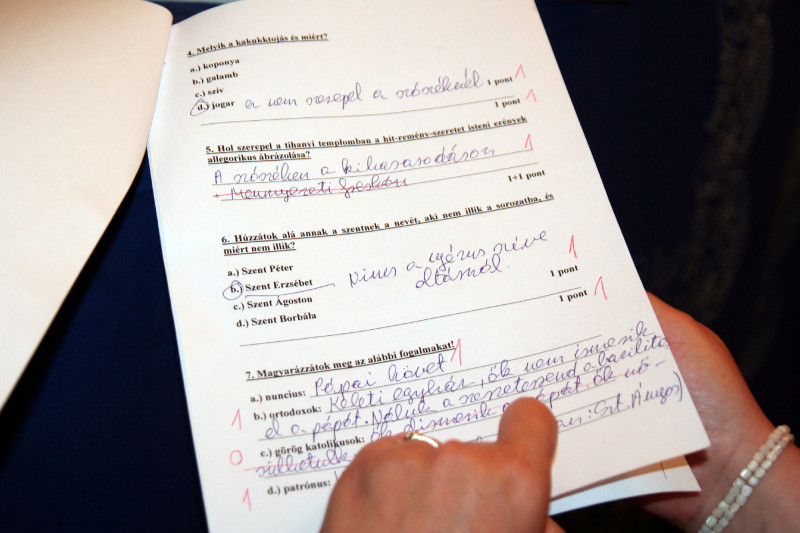 4. Melyik a kakukktojás és miért?
a.) koponya
b.) galamb
c.) szív
d.) jogar ez nem szerepel a szószéknél 1 pont 1
1 pont 1
5. Hol szerepel a tihanyi templomban a hit-remény-szeretet isteni erények
allegorikus ábrázolása?
A szószéken a kihasasodáson 1
+ Mennyezeti freskón
1+1 pont
6. Húzzátok alá annak a szentnek a nevét, aki nem illik a sorozatba, és
miért nem illik?
a.) Szent Péter
b.) Szent Erzsébet Nincs a Jézus szíve 1
oltásnál.
c.) Szent Ágoston 1 pont
d.) Szent Borbála 1 pont 1
7. Magyarázzátok meg az alábbi fogalmakat!
a.) nuncius: Pápai követ 1
1 b.) ortodoxok: Keleti egyház, ők nem ismerik
el a pápát. Náluk a szerzetesrend a bazilita
0 c.) görög katolikusok: ők ismerik a pápát. ők nő-
sülhetnek
1 d.) patrónus: Szt. Ányos)